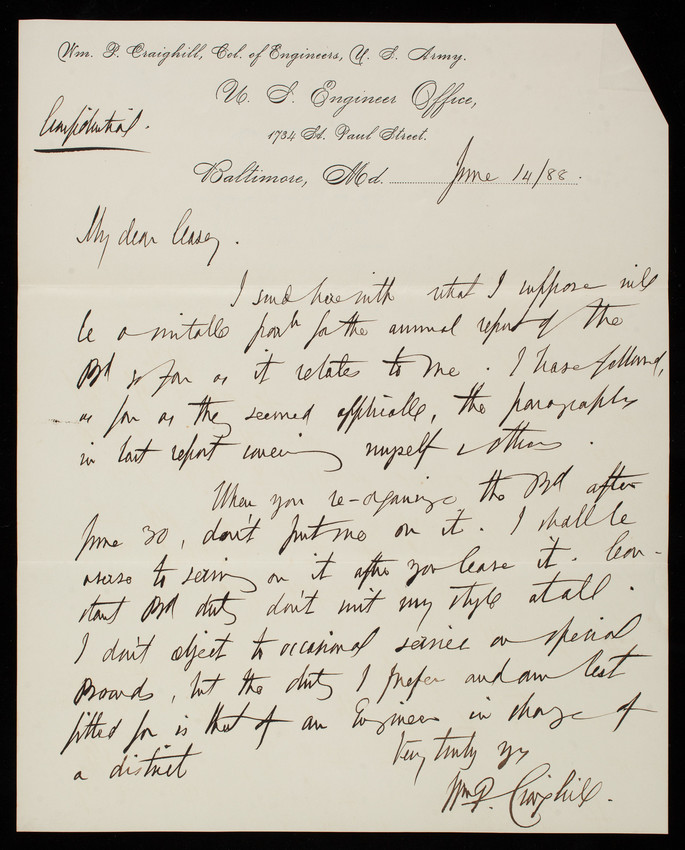 Wm. P. Craighill, Col. of Engineers, U. S. Army.
U. S. Engineer Office,
Confidential.
1734 St. Paul Street.
Baltimore, Md. June 14/88.
My dear Casey.
I send herewith what I suppose will
be a suitable form for the annual report of the
Bd so far as it relates to me. I have followed,
as far as they seemed applicable, the paragraphs
in last report covering myself & others.
When you re-organize the Bd after
June 30, don't put me on it. I shall be
averse to serving on it after you leave it. Con-
stant Bd duty don't suit my style at all.
I don't object to occasional service on special
Boards, but the duty I prefer and am best
fitted for is that of an Engineer in charge of
a district
Very truly yrs
Wm P. Craighill.